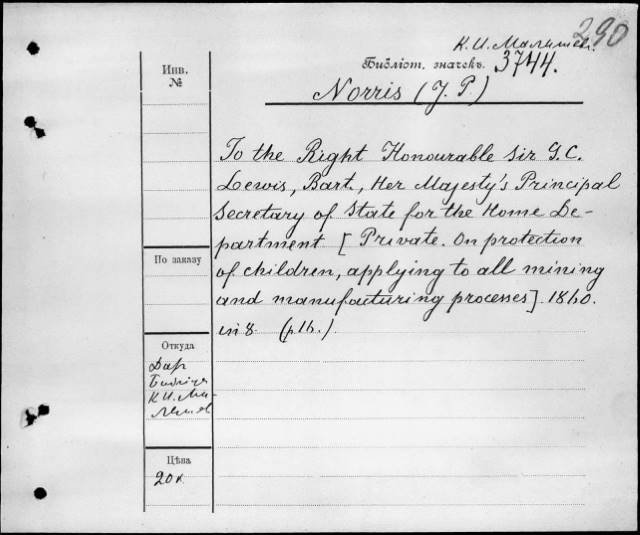 290
К. И. Малышев.
Библіот. значекъ. 3744.
Norris (J. P)
Инв.
№
To the Right Honourable Sir G. C.
Lewis, Bart., Her Majesty's Principal
Secretary of State for the Home De-
partment [Private. On protection
of children, applying to all mining
and manufacturing processes]. 1860.
in 8. (p. 16.)
По заказу
Откуда
Дар
К. И. Ма-
Цѣна
20 к.